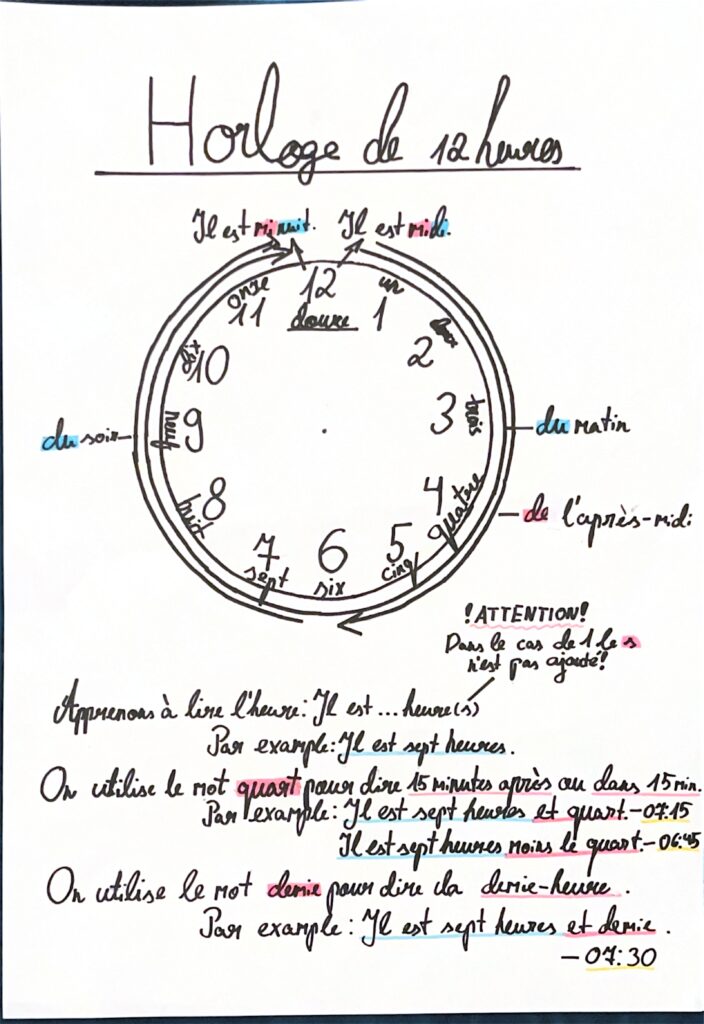 Horloge de 12 heures
Il est minuit. Il est midi.
12
douze
un
1
2
trois
3
quatre
4
cinq
5
six
6
sept
7
huit
8
neuf
9
dix
10
onze
11
du soir
du matin
de l'après-midi
!ATTENTION!
Dans le cas de 1 le s
n'est pas ajouté!
Apprenons à lire l'heure: Il est ... heure(s)
Par example: Il est sept heures.
On utilise le mot quart pour dire 15 minutes après ou dans 15 min.
Par example: Il est sept heures et quart. - 07:15
Il est sept heures moins le quart. - 06:45
On utilise le mot demie pour dire la demie-heure.
Par example: Il est sept heures et demie.
- 07:30